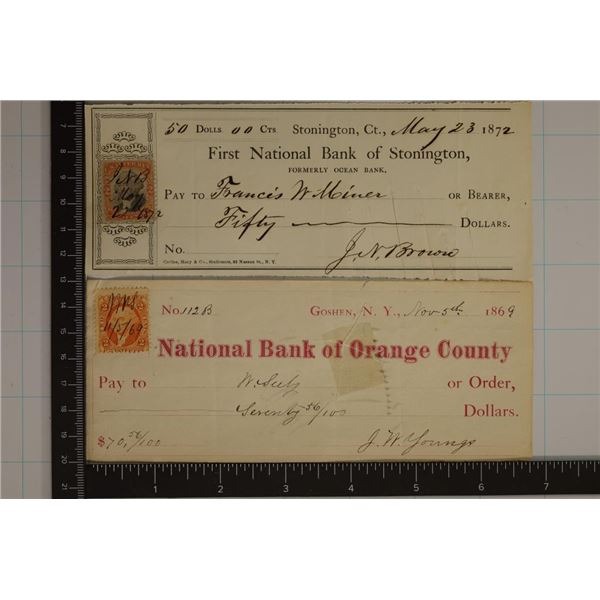 50 Dolls 00 Cts Stonington, Ct., May 23 1872
First National Bank of Stonington,
FORMERLY OCEAN BANK,
Pay to Francis W Miner or Bearer,
Fifty Dollars.
No. J. N. Brown
J N B
May
1872
No. 112B Goshen, N. Y., Nov 5th 1869
N.B.S
11/5/69
National Bank of Orange County
Pay to W. Seely or Order,
Seventy 56/100 Dollars.
$70,56/100 J. W. Youngs
7
8
9
10
11
12
13
14
15
16
17
18
19
20
21
1 2 3 4 5 6 7